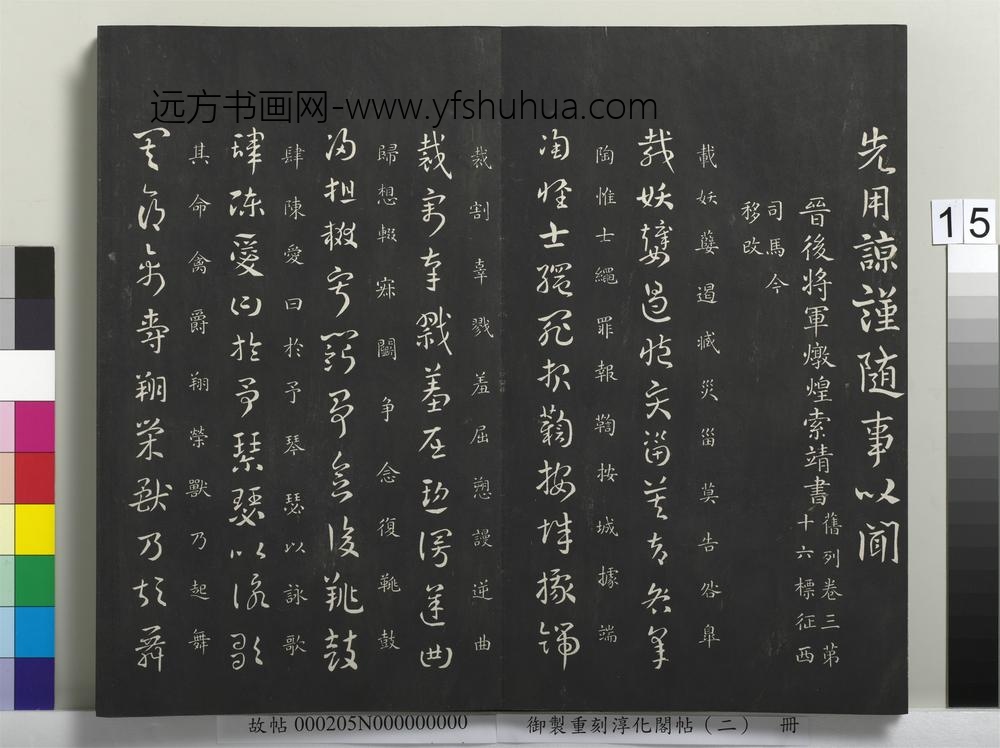 远方书画网-www.yfshuhua.com
先用諒謹隨事以聞
晉後將軍燉煌索靖書
舊列卷三第
十六標征西
司馬今
移改
載妖孽遏臧災甾莫告咎皐
載妖孽遏臧災甾莫告咎皐
陶惟士繩罪報鞫按城據端
陶惟士繩罪報鞫按城據端
裁割辜戮羞屈愬謾逆曲
裁割辜戮羞屈愬謾逆曲
歸想輟寐鬬争念復鞉鼓
歸想輟寐鬬争念復鞉鼓
肆陳愛曰於予琴瑟以詠歌
肆陳愛曰於予琴瑟以詠歌
其命禽爵翔榮獸乃起舞
其命禽爵翔榮獸乃起舞
15
故帖 000205N000000000
御製重刻淳化閣帖（二） 冊